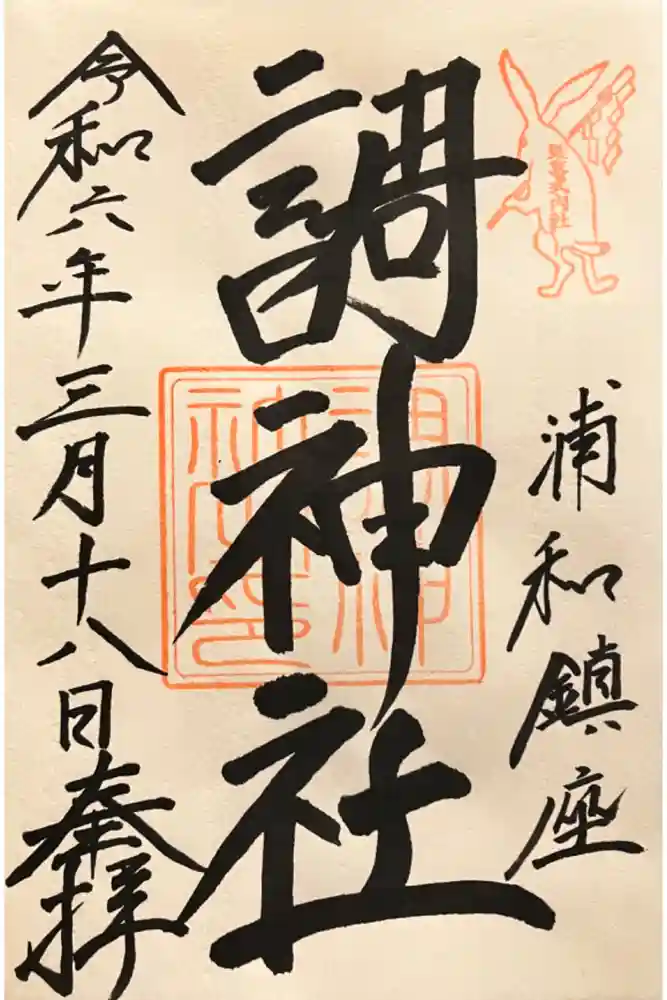 浦和鎮座
調神社
調神社印
令和六年三月十八日奉拝